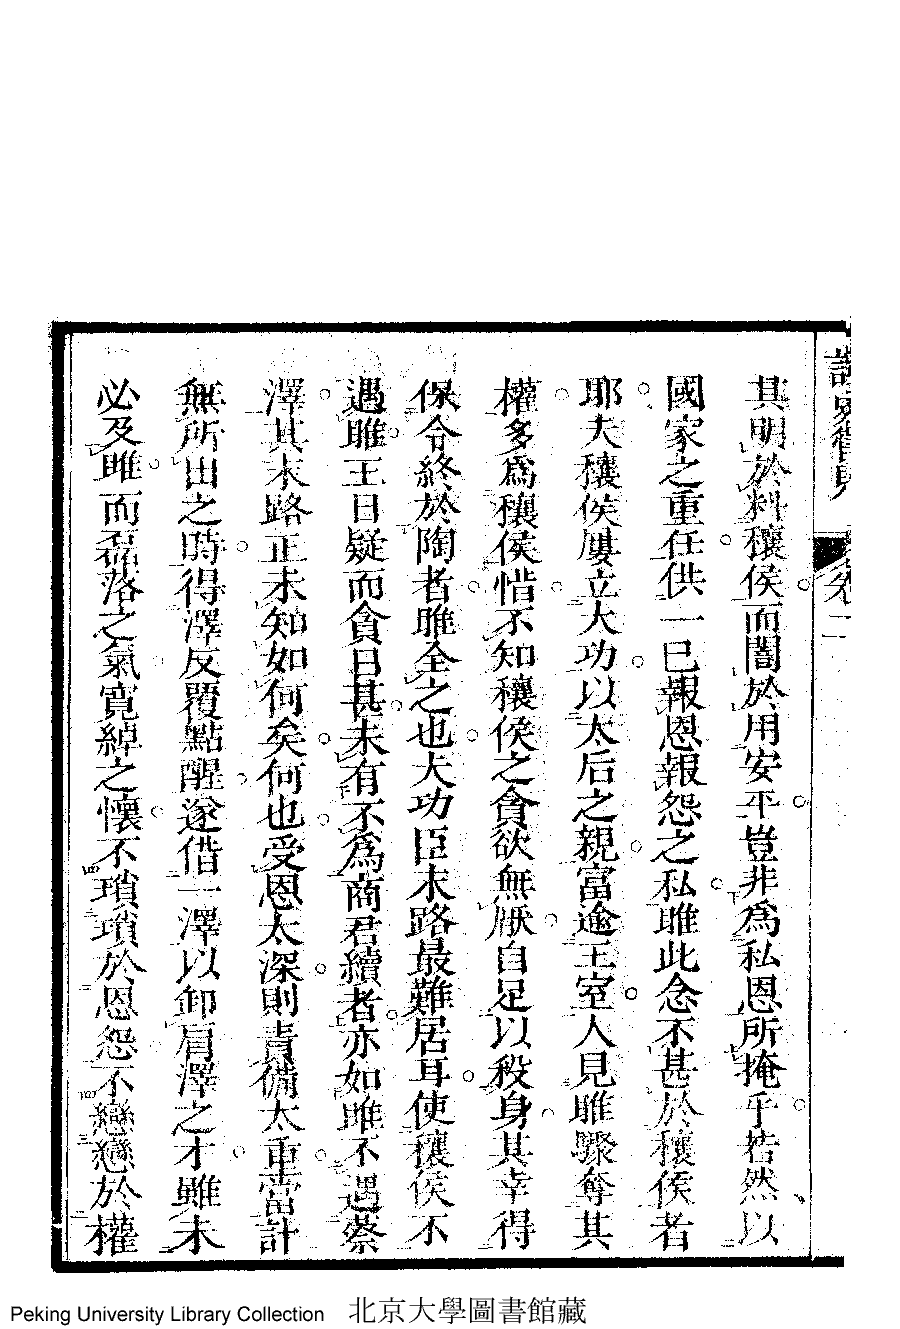 讀史管見 卷二
其明於料穰侯而闇於用安平豈非爲私恩所掩乎若然以
國家之重任供一已報恩報怨之私雎此念不甚於穰侯者
耶夫穰侯屢立大功以太后之親富逾王室人見雎驟奪其
權多爲穰侯惜不知穰侯之貪欲無厭自足以殺身其幸得
保令終於陶者雎全之也大功臣末路最難居耳使穰侯不
遇雎王日疑而貪日甚未有不爲商君續者亦如雎不遇蔡
澤其末路正未知如何矣何也受恩太深則責備太重當計
無所出之時得澤反覆點醒遂借一澤以卸肩澤之才雖未
必及雎而磊落之氣寬綽之懷不瑣瑣於恩怨不戀戀於權
Peking University Library Collection 北京大學圖書館藏